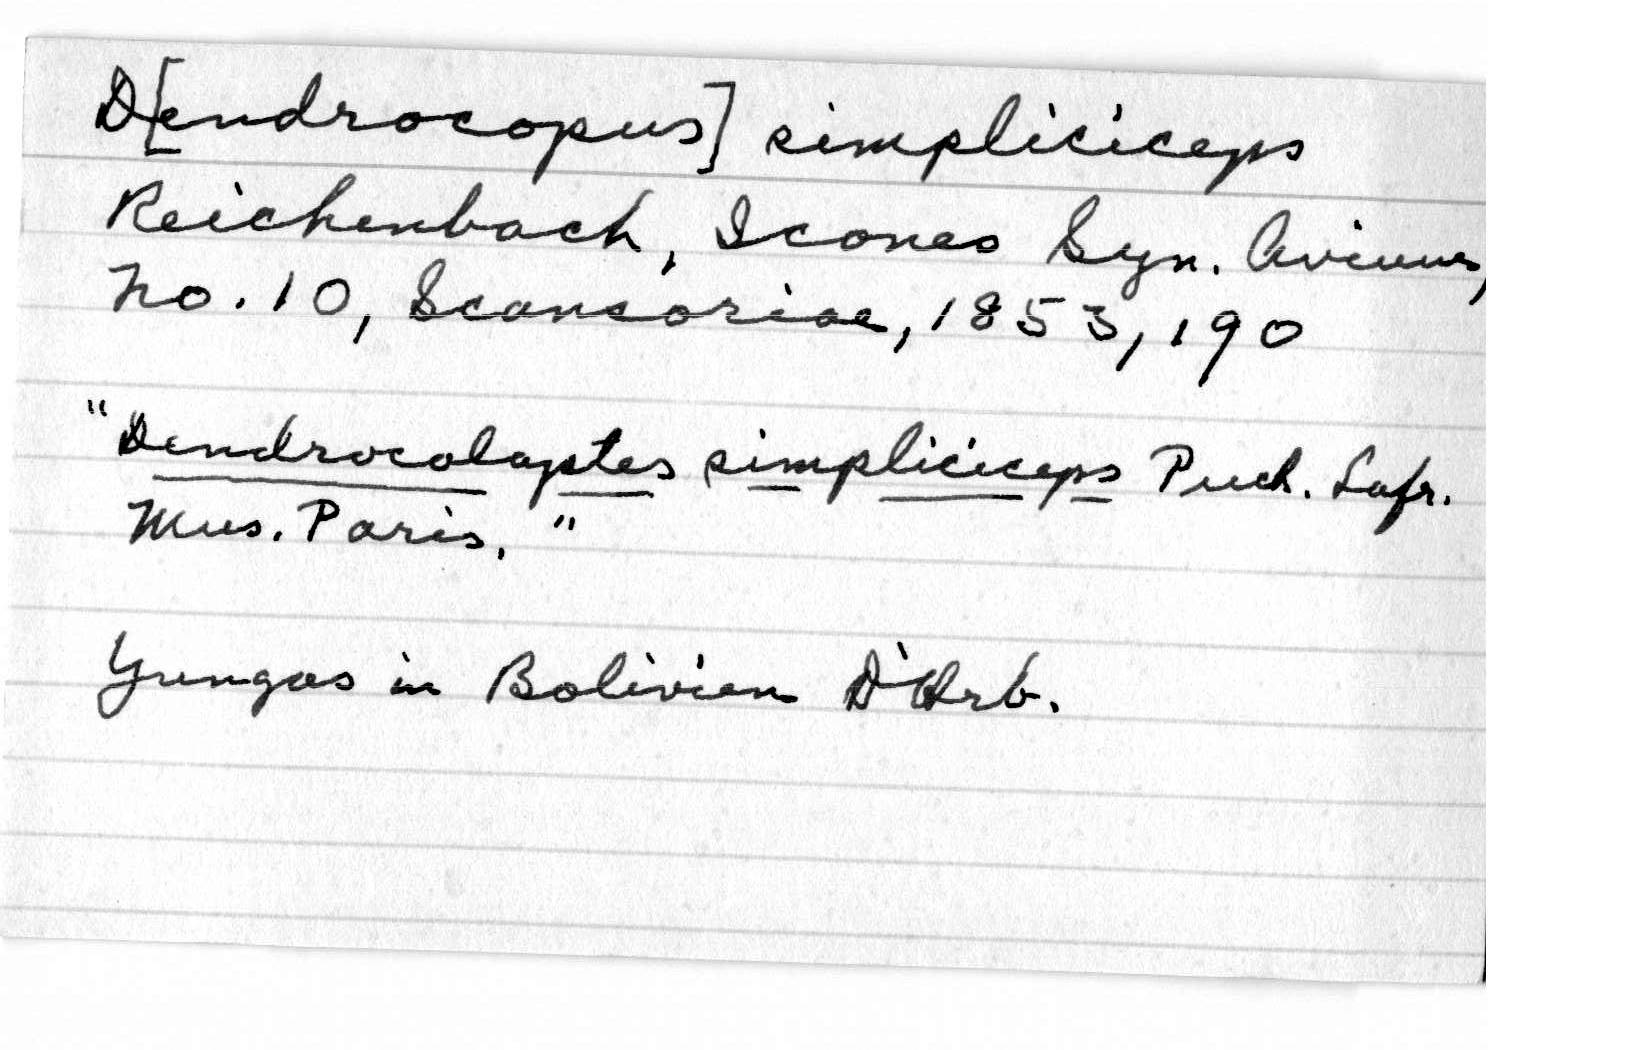 D[endrocopus] simpliciceps
Reichenbach, Icones Syn. Avium,
No. 10, Scansoriae, 1853, 190
"Dendrocolaptes simpliciceps Puch. Lafr.
Mus. Paris."
Yungas in Bolivien D'Orb.